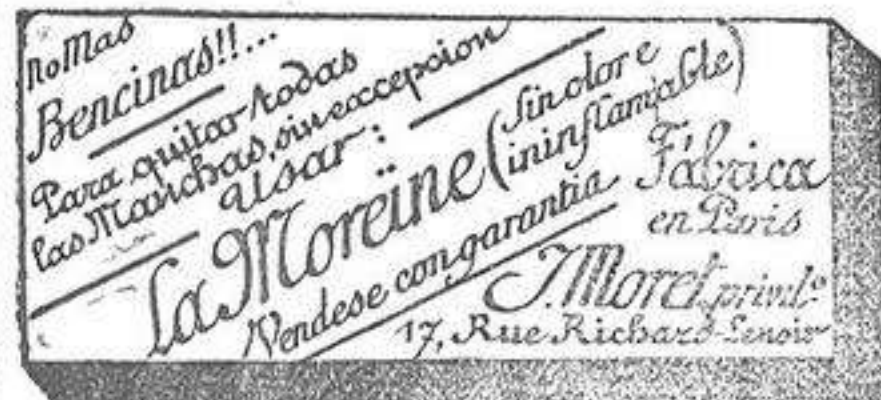 no Mas
Bencinas!!...
Para quitar todas
las Manchas, sin excepcion
Usar:
La Moreïne (Sin olor e
ininflamable)
Vendese con garantia
Fábrica
en Paris
J. Moret, privil.º
17, Rue Richard-Lenoir